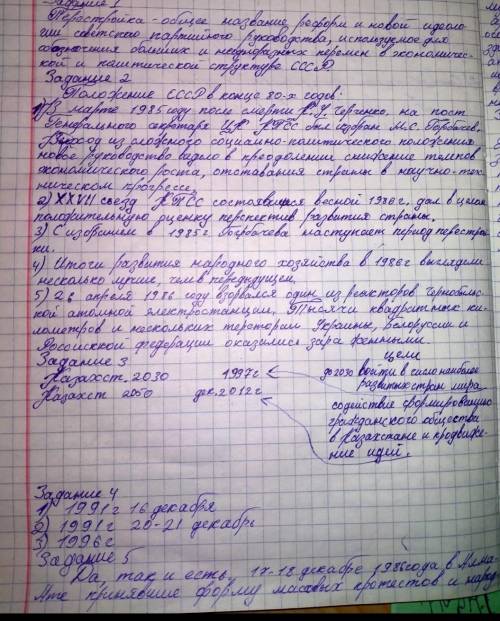 Задание 1
Перестройка - общее название реформ и новой идеоло-
гии советского партийного руководства, используемое для
обозначения больших и неоднозначных перемен в экономичес-
кой и политической структуре СССР.
Задание 2
Положение СССР в конце 80-х годов.
1) В марте 1985 году после смерти К.У. Черненко, на пост
Генерального секретаря ЦК КПСС был избран М.С. Горбачев.
Выход из сложного социально-политического положения
новое руководство видело в преодолении снижение темпов
экономического роста, отставания страны в научно-тех-
ническом прогрессе.
2) XXVII съезд КПСС состоявшися весной 1986г, дал в целом
положительную оценку перспектив развития страны.
3) С избранием в 1985г Горбачева наступает период перестрой-
ки.
4) Итоги развития народного хозяйства в 1986г выглядели
несколько лучше, чем в предыдущем.
5) 26 апреля 1986 году взорвался один из реакторов Чернобыльс-
кой атомной электростанции, тысячи квадратных ки-
лометров и нескольких территории Украины, Белоруссии и
Российской Федерации оказались зараженными.
Задание 3
цели
Казахст. 2030 1997г до 2030 войти в число наиболее
развитых стран мира
Казахст 2050 дек. 2012г
содействие формированию
гражданского общества
в Казахстане и продвиже-
ние идей.
Задание 4
1) 1991г 16 декабря
2) 1991г 20-21 декабрь
3) 1996г
Задание 5
Да, так и есть, 17-18 декабре 1986 года в Алма-
Ате принявшие форму массовых протестов и народ